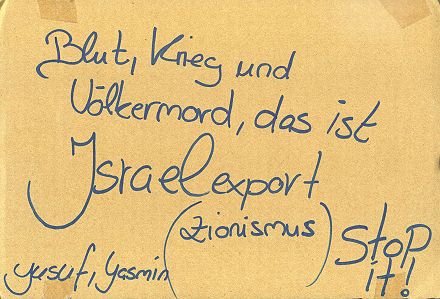 Blut, Krieg und
Völkermord, das ist
Israelexport
(Zionismus)
Yusuf, Yasmin
Stop
it!